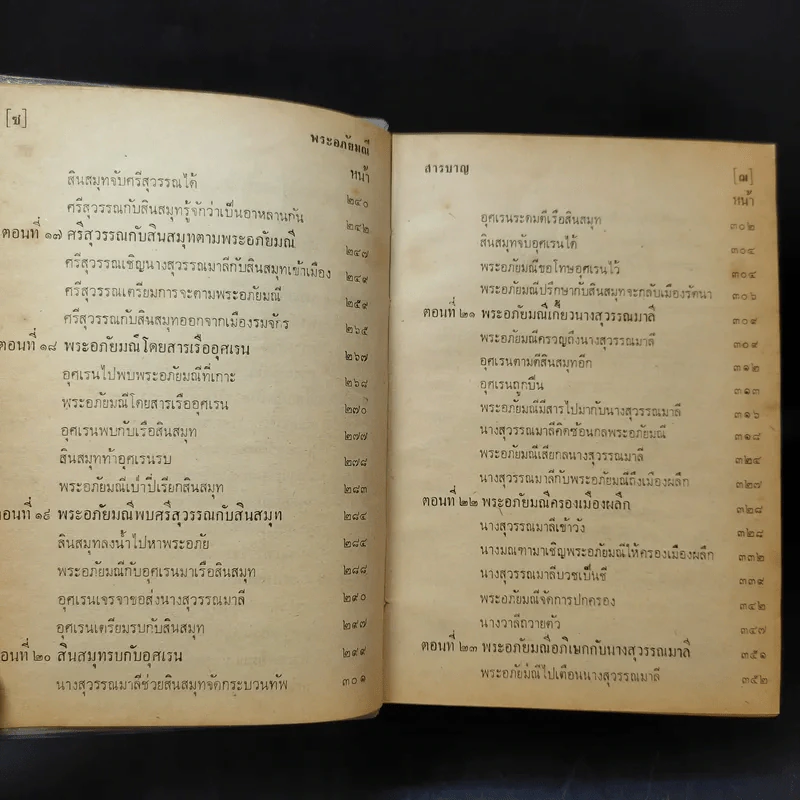 [ช]
พระอภัยมณี
หน้า
สินสมุทจับศรีสุวรรณได้ ๒๔๐
ศรีสุวรรณกับสินสมุทรู้จักว่าเป็นอาหลานกัน ๒๔๒
ตอนที่ ๑๗ ศรีสุวรรณกับสินสมุทตามพระอภัยมณี ๒๔๗
ศรีสุวรรณเชิญนางสุวรรณมาลีกับสินสมุทเข้าเมือง ๒๔๙
ศรีสุวรรณเตรียมการจะตามพระอภัยมณี ๒๕๙
ศรีสุวรรณกับสินสมุทออกจากเมืองรมจักร ๒๖๕
ตอนที่ ๑๘ พระอภัยมณีโดยสารเรืออุศเรน ๒๖๗
อุศเรนไปพบพระอภัยมณีที่เกาะ ๒๖๘
พระอภัยมณีโดยสารเรืออุศเรน ๒๗๐
อุศเรนพบกับเรือสินสมุท ๒๗๗
สินสมุทท้าอุศเรนรบ ๒๗๘
พระอภัยมณีเป่าปี่เรียกสินสมุท ๒๘๓
ตอนที่ ๑๙ พระอภัยมณีพบศรีสุวรรณกับสินสมุท ๒๘๔
สินสมุทลงน้ำไปหาพระอภัย ๒๘๔
พระอภัยมณีกับอุศเรนมาเรือสินสมุท ๒๘๘
อุศเรนเจรจาขอส่งนางสุวรรณมาลี ๒๙๐
อุศเรนเตรียมรบกับสินสมุท ๒๙๗
ตอนที่ ๒๐ สินสมุทรบกับอุศเรน ๒๙๙
นางสุวรรณมาลีช่วยสินสมุทจัดกระบวนทัพ ๓๐๑
สารบาญ
[ฌ]
หน้า
อุศเรนระดมตีเรือสินสมุท ๓๐๒
สินสมุทจับอุศเรนได้ ๓๐๔
พระอภัยมณีขอโทษอุศเรนไว้ ๓๐๔
พระอภัยมณีปรึกษากับสินสมุทจะกลับเมืองรัตนา ๓๐๖
ตอนที่ ๒๑ พระอภัยมณีเกี้ยวนางสุวรรณมาลี ๓๐๙
พระอภัยมณีครวญถึงนางสุวรรณมาลี ๓๐๙
อุศเรนตามตีสินสมุทอีก ๓๑๒
อุศเรนถูกปืน ๓๑๓
พระอภัยมณีมีสารไปมากับนางสุวรรณมาลี ๓๑๖
นางสุวรรณมาลีคิดซ้อนกลพระอภัยมณี ๓๑๘
พระอภัยมณีเสียกลนางสุวรรณมาลี ๓๒๔
นางสุวรรณมาลีกับพระอภัยมณีถึงเมืองผลึก ๓๒๗
ตอนที่ ๒๒ พระอภัยมณีครองเมืองผลึก ๓๒๘
นางสุวรรณมาลีเข้าวัง ๓๒๘
นางมณฑามาเชิญพระอภัยมณีให้ครองเมืองผลึก ๓๓๒
นางสุวรรณมาลีบวชเป็นชี ๓๓๙
พระอภัยมณีจัดการปกครอง ๓๔๒
นางวาลีถวายตัว ๓๔๗
ตอนที่ ๒๓ พระอภัยมณีอภิเษกกับนางสุวรรณมาลี ๓๕๑
พระอภัยมณีไปเตือนนางสุวรรณมาลี ๓๕๒